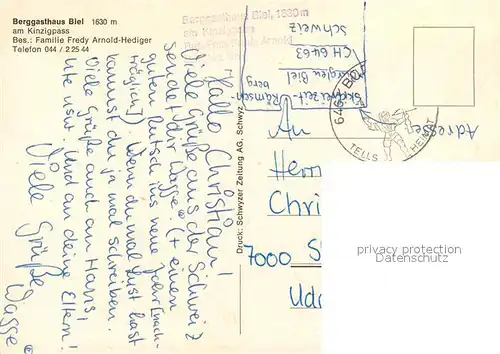 Berggasthaus Biel 1630 m
am Kinzigpass
Bes.: Familie Fredy Arnold-Hediger
Telefon 044 / 2 25 44
Berggasthaus Biel, 1630 m
am Kinzigpass
Fredy Arnold
Hallo Christian!
Viele Grüße aus der Schweiz
sendet dir Wagge (+ einen
guten Rutsch ins neue Jahr [nach-
träglich]. Wenn du mal Lust hast
kannst du ja mal schreiben.
Viele Grüße auch an Hans,
Ute usw. Und an deine Eltern!
Viele Grüße
Wagge
Druck: Schwyzer Zeitung AG, Schwyz
Skifreizeit Rämsch
berg
Biel
CH 6463
Schweiz
TELLS HEIMAT
Adresse
An
Herrn
Chri
7000 S
privacy protection
Datenschutz